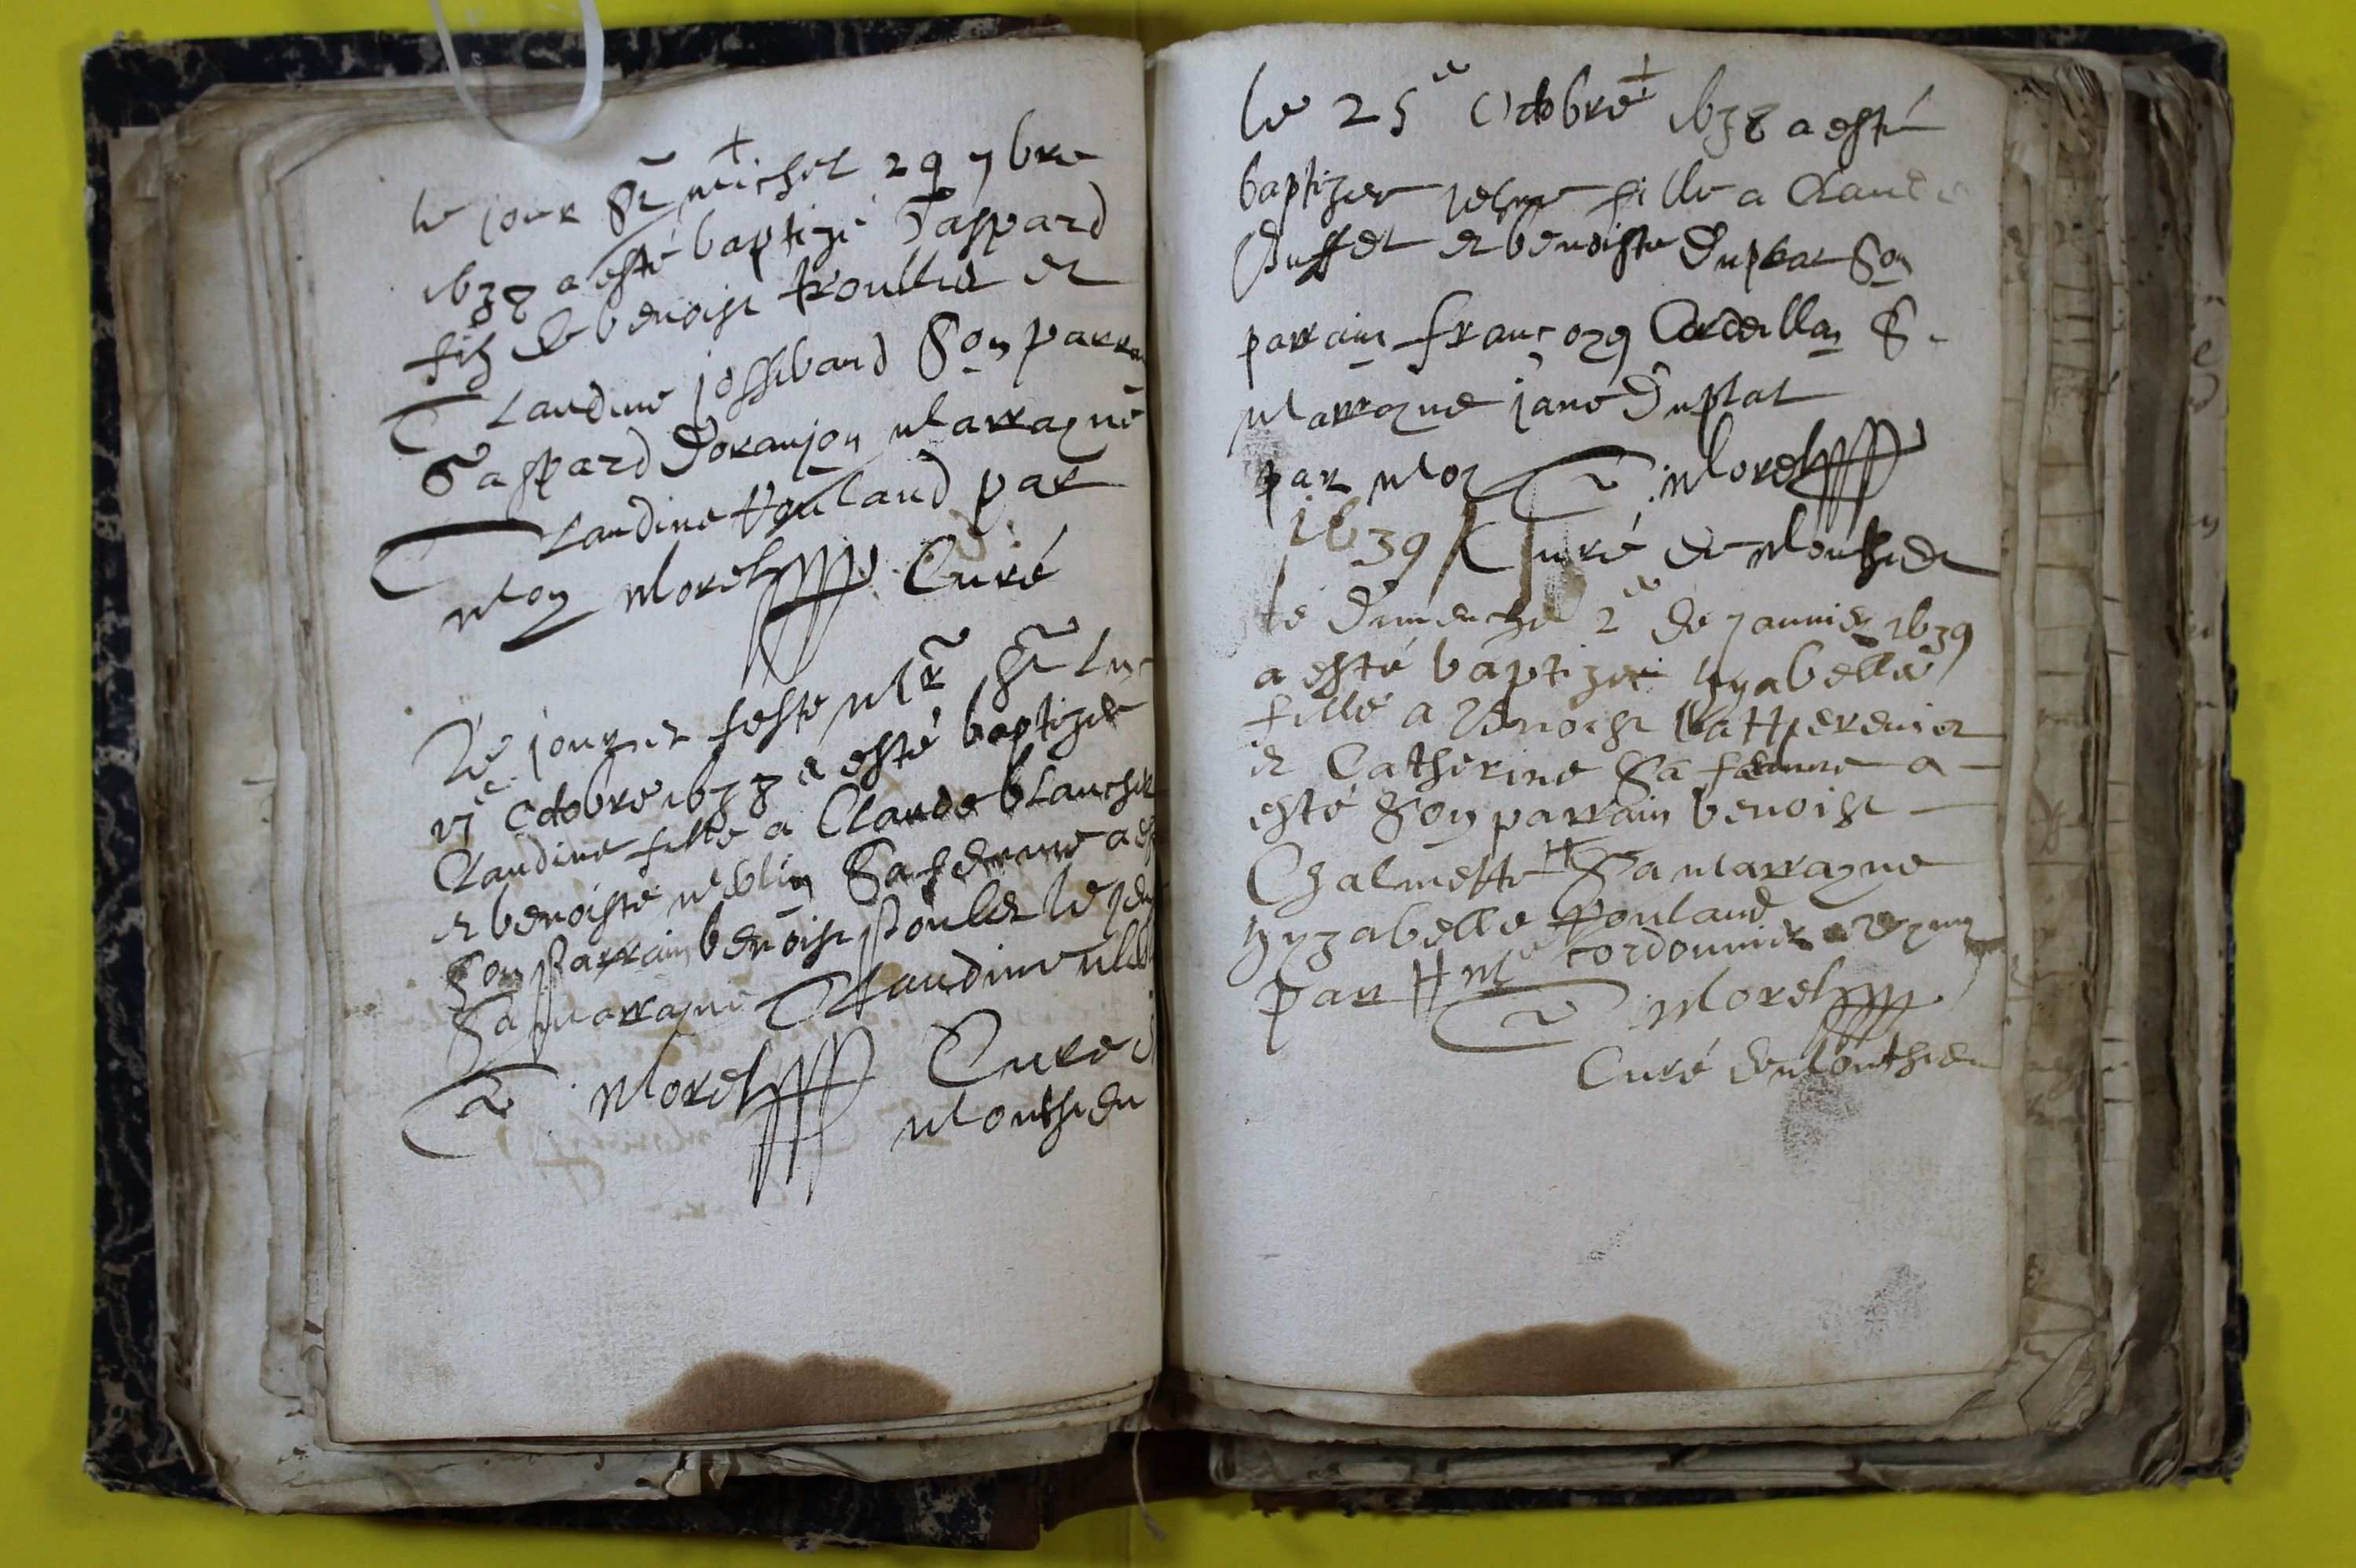 le jour St michel 29 7bre
1638 a esté baptizé Gaspard
filz de benoist troullet et
Claudine josserand Son parra
Gaspard Doranjon Marrayne
Claudine pouland par
Moy Morel Curé
Le jour et feste Mr St Luc
Octobre 1638 a esté baptizee
Claudine fille a Claude blanchet
et benoiste Sa femme a
Son parrain benoist poulet le
Sa marrayne Claudine
C Morel Curé
Monthieu
le 25e Octobre 1638 a esté
baptizee fille a Claude
Buffet et benoiste Duplat Son
parrain Françoys Cordellan S
Marrayne jane Duplat
par Moy C Morel
1639 Curé de Monthieu
le Dimenche 2e de janvier 1639
a esté baptizee Yzabelle
fille a Benoist
et Catherine Sa femme a
esté Son parrain benoist
Chalmette # Sa marrayne
Yzabelle pouland
par # Me cordonnier
C Morel
Curé de Monthieu